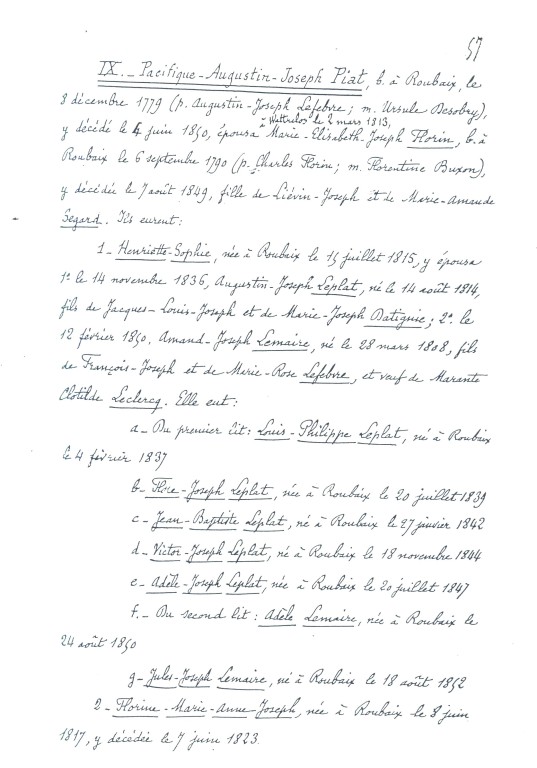 57
IX. - Pacifique-Augustin-Joseph Piat, b. à Roubaix, le
8 décembre 1779 (p. Augustin-Joseph Lefebre; m. Ursule Desobry),
à Wattrelos le 2 mars 1813,
y décédé le 4 juin 1850, épousa Marie-Elisabeth Joseph Florin, b. à
Roubaix le 6 septembre 1790 (p. Charles Florin; m. Florentine Buxon),
y décédée le 7 août 1849, fille de Liévin-Joseph et de Marie-Amande
Segard. Ils eurent:
1_ Henriette-Sophie, née à Roubaix le 15 juillet 1815, y épousa
1º le 14 novembre 1836, Augustin-Joseph Leplat, né le 14 août 1814,
fils de Jacques-Louis-Joseph et de Marie-Joseph Datignie; 2º le
12 février 1850. Amand-Joseph Lemaire, né le 28 mars 1808, fils
de François-Joseph et de Marie-Rose Lefebvre, et veuf de Marante
Clotilde Leclercq. Elle eut:
a_ Du premier lit: Louis-Philippe Leplat, né à Roubaix
le 4 février 1837
b_ Flore-Joseph Leplat, née à Roubaix le 20 juillet 1839
c_ Jean-Baptiste Leplat, né à Roubaix le 27 janvier 1842
d_ Victor-Joseph Leplat, né à Roubaix le 18 novembre 1844
e_ Adèle-Joseph Leplat, née à Roubaix le 20 juillet 1847
f._ Du second lit: Adèle Lemaire, née à Roubaix le
24 août 1850
g_ Jules-Joseph Lemaire, né à Roubaix le 18 août 1852
2_ Florine-Marie-Anne Joseph, née à Roubaix le 8 juin
1817, y décédée le 7 juin 1823.